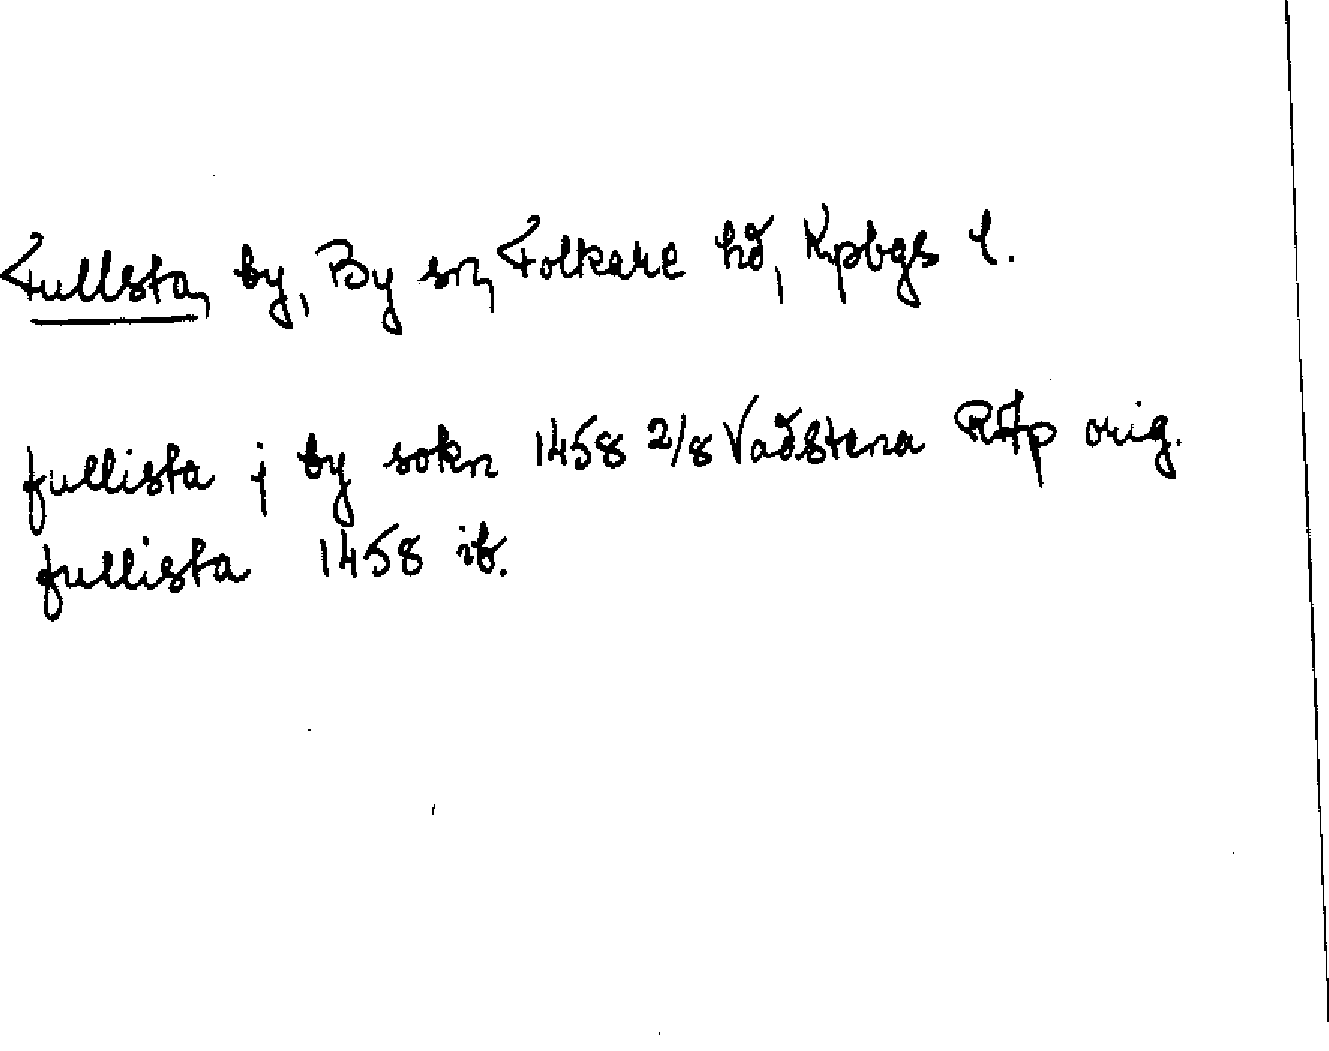 Fullsta, by, By sn, Folkare hd, Kpbgs l.
fullista j by sokn 1458 2/8 Vadstena RAp orig.
fullista 1458 ib.